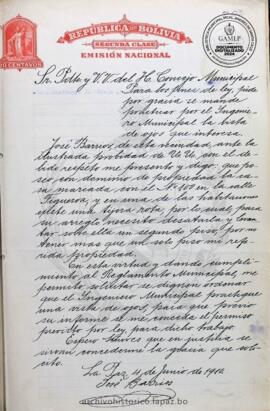 REPÚBLICA DE BOLIVIA
SEGUNDA CLASE
EMISIÓN NACIONAL
CENTAVOS
GAMLP
DOCUMENTO
DIGITALIZADO
2024
Sr. Pdte y V.V. del H. Concejo Municipal
Para los fines de ley, pide
por gracia se mande
practicar por el Ingenie-
ro Municipal la vista
de ojos que interesa.
José Barrios, de esta vecindad, ante la
ilustrada probidad de UU. con el de-
bido respeto me presento y digo: que po-
seo, con dominio de propiedad la ca-
sa marcada con el Nº 100 en la calle
Figueroa, y en una de las habitaciones
existe una rota, por lo cual, para
su arreglo necesito desatarla y levan-
tar sobre ella un segundo piso, por no
tener mas que un solo piso mi refe-
rida propiedad.
En esta virtud y dando cumpli-
miento al Reglamento Municipal, me
permito solicitar se dignen ordenar
que el Ingeniero Municipal practique
una vista de ojos para que previo
su informe se me conceda el permiso
previsto por ley para dicho trabajo.
Espero Señores que en justicia se
sirvan concederme la gracia que soli-
cito.
La Paz, 4 de junio de 1910.
José Barrios
archivohistorico.lapaz.bo